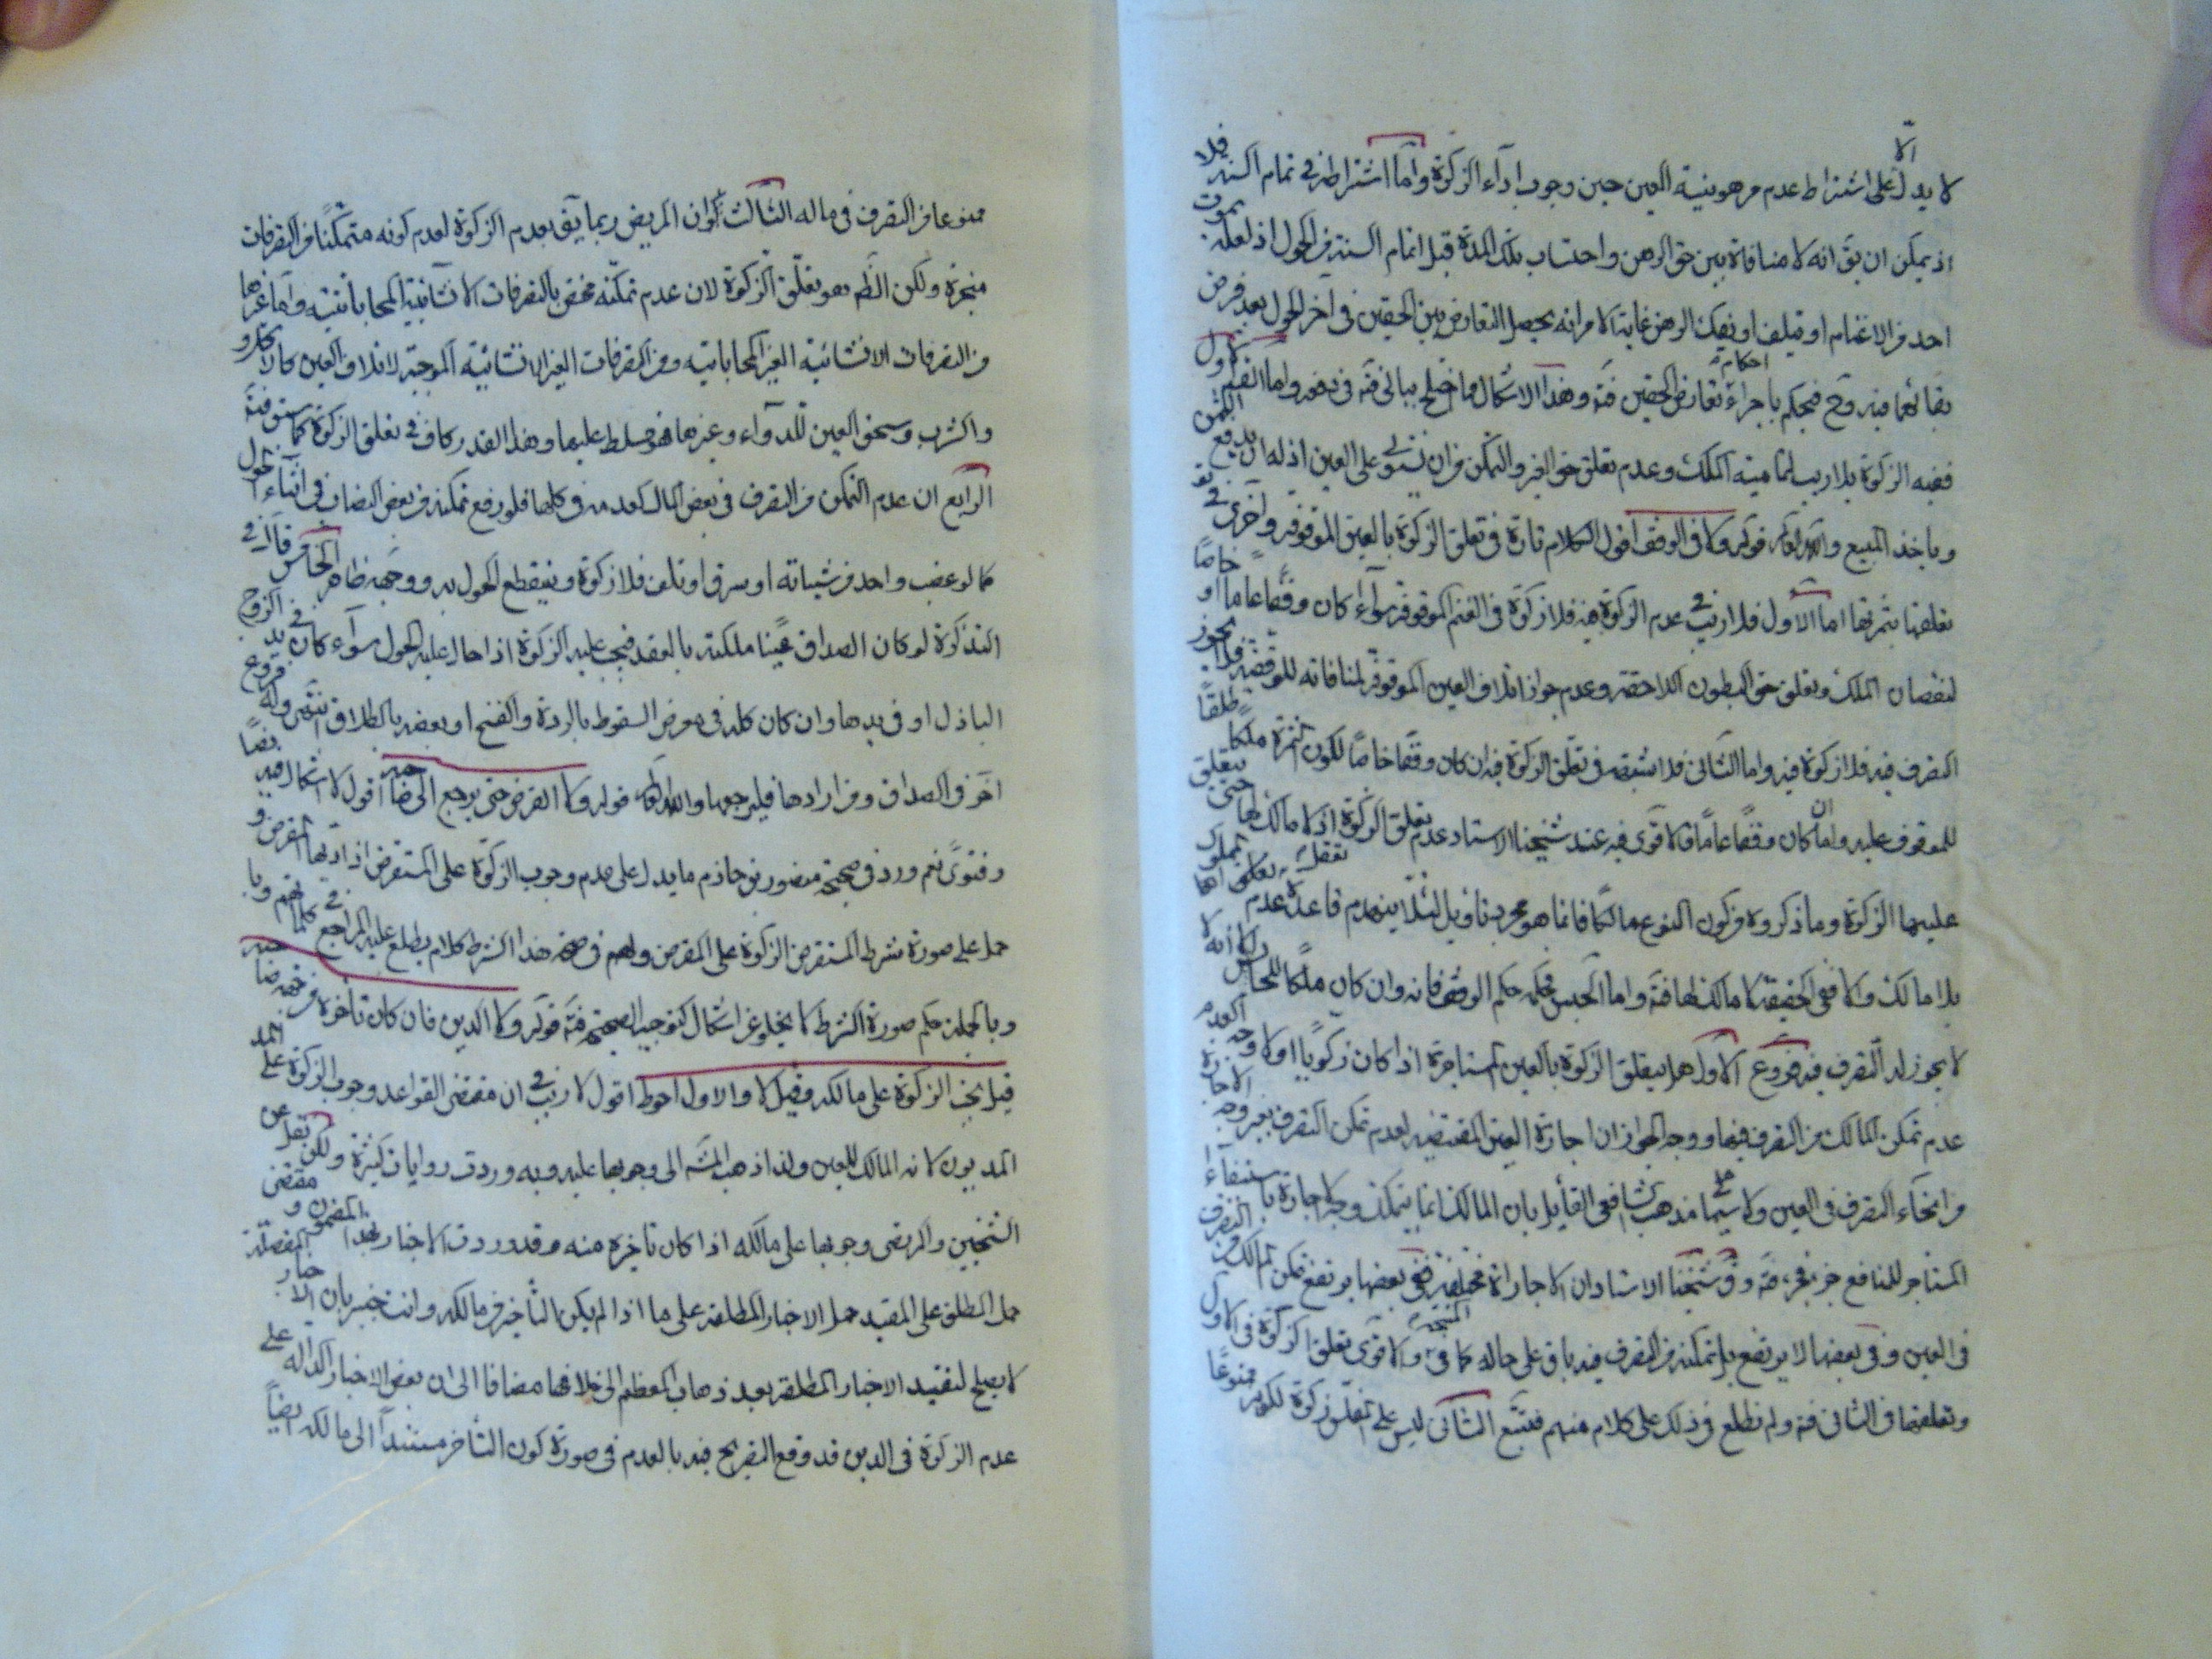 لا يدل الّا على اشتراط عدم مرهونية العين حين وجوب اداء الزكوة واما اشتراطه في تمام السنة فلا
اذ يمكن ان يق انه لا منافاة بين حق الرهن واحتساب تلك المدة قبل اتمام السنة من الحول اذ لعله يموت
احد من الاغنام او يتلف او يفك الرهن غاية الامر انه يحصل التعارض بين الحقين في آخر الحول بعد فرض
بقائهما فيه وح فيحكم باجراء احكام تعارض الحقين فتّه وهذا الاشكال مما اختلج ببالي فتّه في
ففيه الزكوة بلا ريب لتمامية الملك وعدم تعلق حق الغير والتمكن من ان يستولي على العين اذ له ان يدفع الثمن
وياخذ المبيع والله العالم قوله ولا في الوقف اقول الكلام تارة في تعلق الزكوة بالعين الموقوفة واخرى في
تعلقها بثمرتها اما الاول فلا ريب في عدم الزكوة فيه فلا زكوة في الغنم الموقوفة سواء كان وقفا عاما او خاصا
لنقصان الملك وتعلق حق البطون اللاحقة وعدم جواز اتلاف العين الموقوفة لمنافاته للوقفية فلا يجوز
التصرف فيه فلا زكوة فيه واما الثاني فلا شبهة في تعلق الزكوة فيه ان كان وقفا خاصا لكون الثمرة ملكا طلقا
للموقوف عليه واما ان كان وقفا عاما فالاقوى فيه عند شيخنا الاستاد عدم تعلق الزكوة اذ لا مالك لها حتى يتعلق
عليها الزكوة وما ذكروه من كون النوع مالكا فانما هو مجرد تاويل لئلا ينهدم قاعدة عدم تعقل مملوك
بلا مالك والا ففي الحقيقة لا مالك لها فتّه واما الحبس فحكمه حكم الوقف فانه وان كان ملكا للحابس الا انه لا
لا يجوز له التصرف فيه فروع الاول هل يتعلق الزكوة بالعين المستاجرة اذا كان زكويا او لا وجه العدم
عدم تمكن المالك من التصرف فيها ووجه الجواز ان اجارة العين المقتضية لعدم تمكن التصرف بغير وجه الاجارة
من انحاء التصرف في العين ولا سيما على مذهب الشافعي القائل بان المالك انما يتمكن وجه الاجارة باستيفاء
المستاجر للمنافع جزء فجزء فتّه وق شيخنا الاستاد ان الاجاراة مختلفة ففي بعضها يرتفع تمكن المالك من التصرف
في العين وفي بعضها لا يرتفع بل تمكنه من التصرف فيه باق على حاله كما في والاقوى تعلق الزكوة في الاول
وتعلقها في الثاني فتّه ولم نطلع في ذلك على كلام منهم فتتبع الثاني ليس على زكوة لكونه ممنوعا
ممنوعا من التصرف في ماله الثالث لو ان المريض ربما يق بعدم الزكوة لعدم كونه متمكنا من التصرفات
منجزة ولكن الظّم هو تعلق الزكوة لان عدم تمكنه مختص بالتصرفات الانشائية المحاباتية واما غيرها
من التصرفات الانشائية الغير المحاباتية ومن التصرفات الغير الانشائية الموجبة لاتلاف العين كالاكل و
والشرب وسحق العين للدواء وغيرها فهو مسلط عليها وهذا القدر كاف في تعلق الزكوة كما سبق فتّه
الرابع ان عدم التمكن من التصرف في بعض المال كعدمه في كلها فلو رفع تمكنه من بعض النصاب في اثناء الحول
كما لو غصب واحد من شياته او سرق او تلف فلا زكوة وينقطع الحول به ووجهه ظاهر الخامس قال في
التذكرة لو كان الصداق عينا ملكته بالعقد فيجب عليه الزكوة اذا حال عليه الحول سواء كان في يد الزوج
الباذل او في يدها وان كان كله في معرض السقوط بالردة والفسخ او بعضه بالطلاق انتهى وله فروع
آخر في الصداق ومن ارادها فليرجعها والله العالم قوله ولا القرض حتى يرجع الى صاحبه اقول لا اشكال فيه نصا
وفتوى نعم ورد في صحيحة منصور بن حازم ما يدل على عدم وجوب الزكوة على المستقرض اذا اداها المقرض و
حمل على صورة شرط المستقرض الزكوة على المقرض ولهم في صحة هذا الشرط كلام يطلع عليه المراجع في كلماتهم
وبالجملة حكم صورة الشرط لا يخلو عن اشكال كتوجيه الصحيحة فتّه قوله ولا الدين فان كان تأخره من جهة صاحبه
قيل يجب الزكوة على مالكه وقيل لا والاول احوط اقول لا ريب في ان مقتضى القواعد وجوب الزكوة على
المديون لانه المالك للعين ولذا ذهب المشّه الى وجوبها عليه وبه وردت روايات كثيرة ولكن نقل عن
الشيخين والمرتضى وجوبها على مالكه اذا كان تاخيره منه وقد وردت الاخبار بهذا المضمون و مقتضى
حمل المطلق على المقيد حمل الاخبار المطلقة على ما اذا لم يكن التأخير من مالكه وانت خبير بان الاخبار المفصلة
لا يصلح لتقييد الاخبار المطلقة بعد ذهاب المعظم الى خلافها مضافا الى ان بعض الاخبار الدالة على
عدم الزكوة في الدين قد وقع التصريح فيه بالعدم في صورة كون التأخر مستندا الى مالكه ايضا